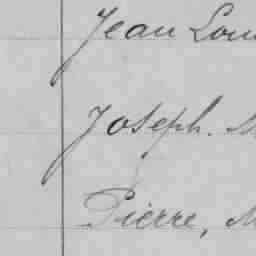 Jean Lou
Joseph. M
Pierre, M